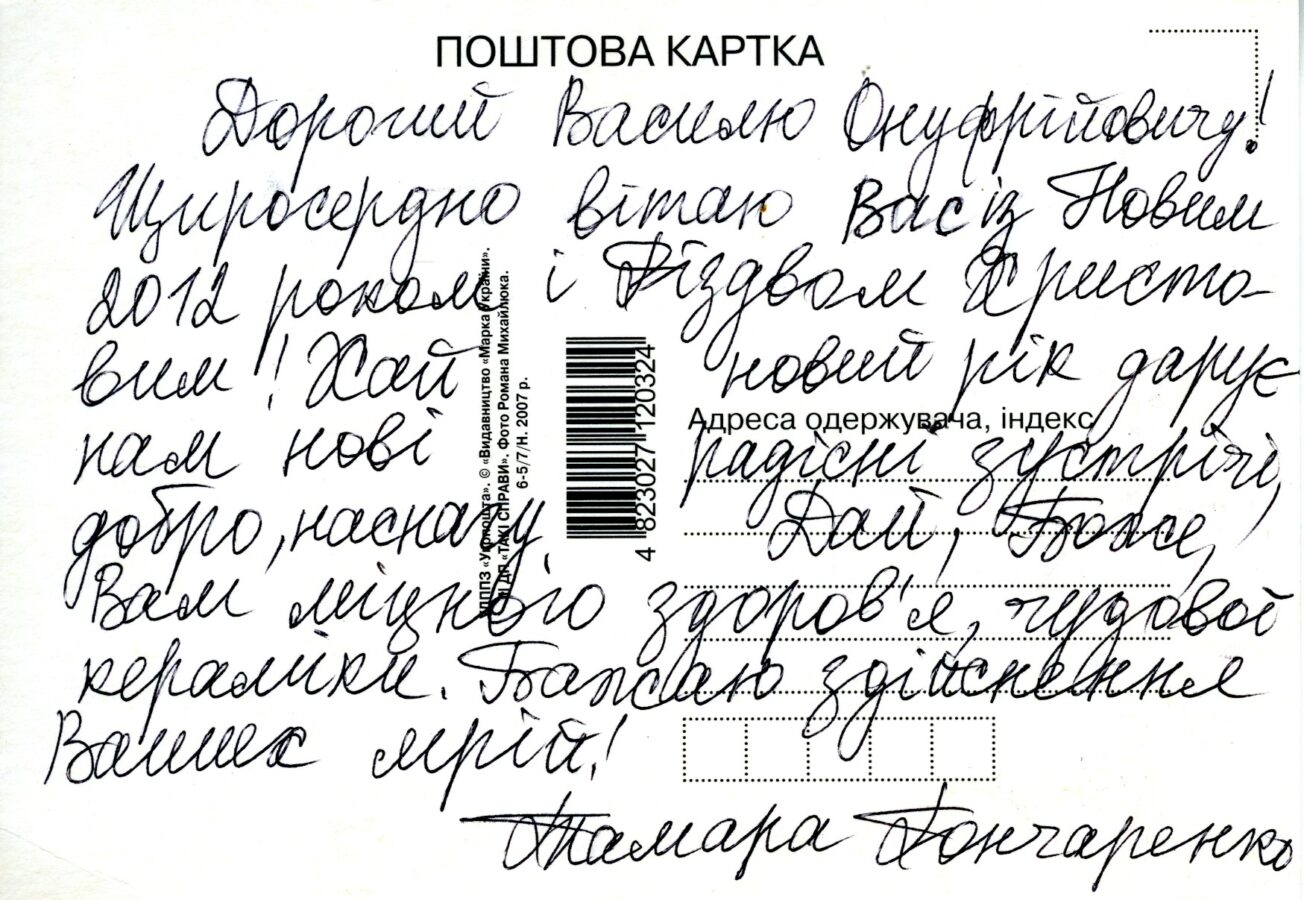 ПОШТОВА КАРТКА
Дорогий Василю Онуфрійовичу!
Щиросердно вітаю Вас із Новим
2012 роком і Різдвом Христо-
вим! Хай новий рік дарує
нам нові радісні зустрічі,
добро, наснагу. Дай, Боже,
Вам міцного здоров'я, чудової
кераміки. Бажаю здійснення
Ваших мрій!
Тамара Гончаренко
Адреса одержувача, індекс
ДППЗ «Укрпошта». © «Видавництво «Марка України».
ДП «ТАКІ СПРАВИ». Фото Романа Михайлюка.
6-5/7/Н. 2007 р.
4 823027 120324